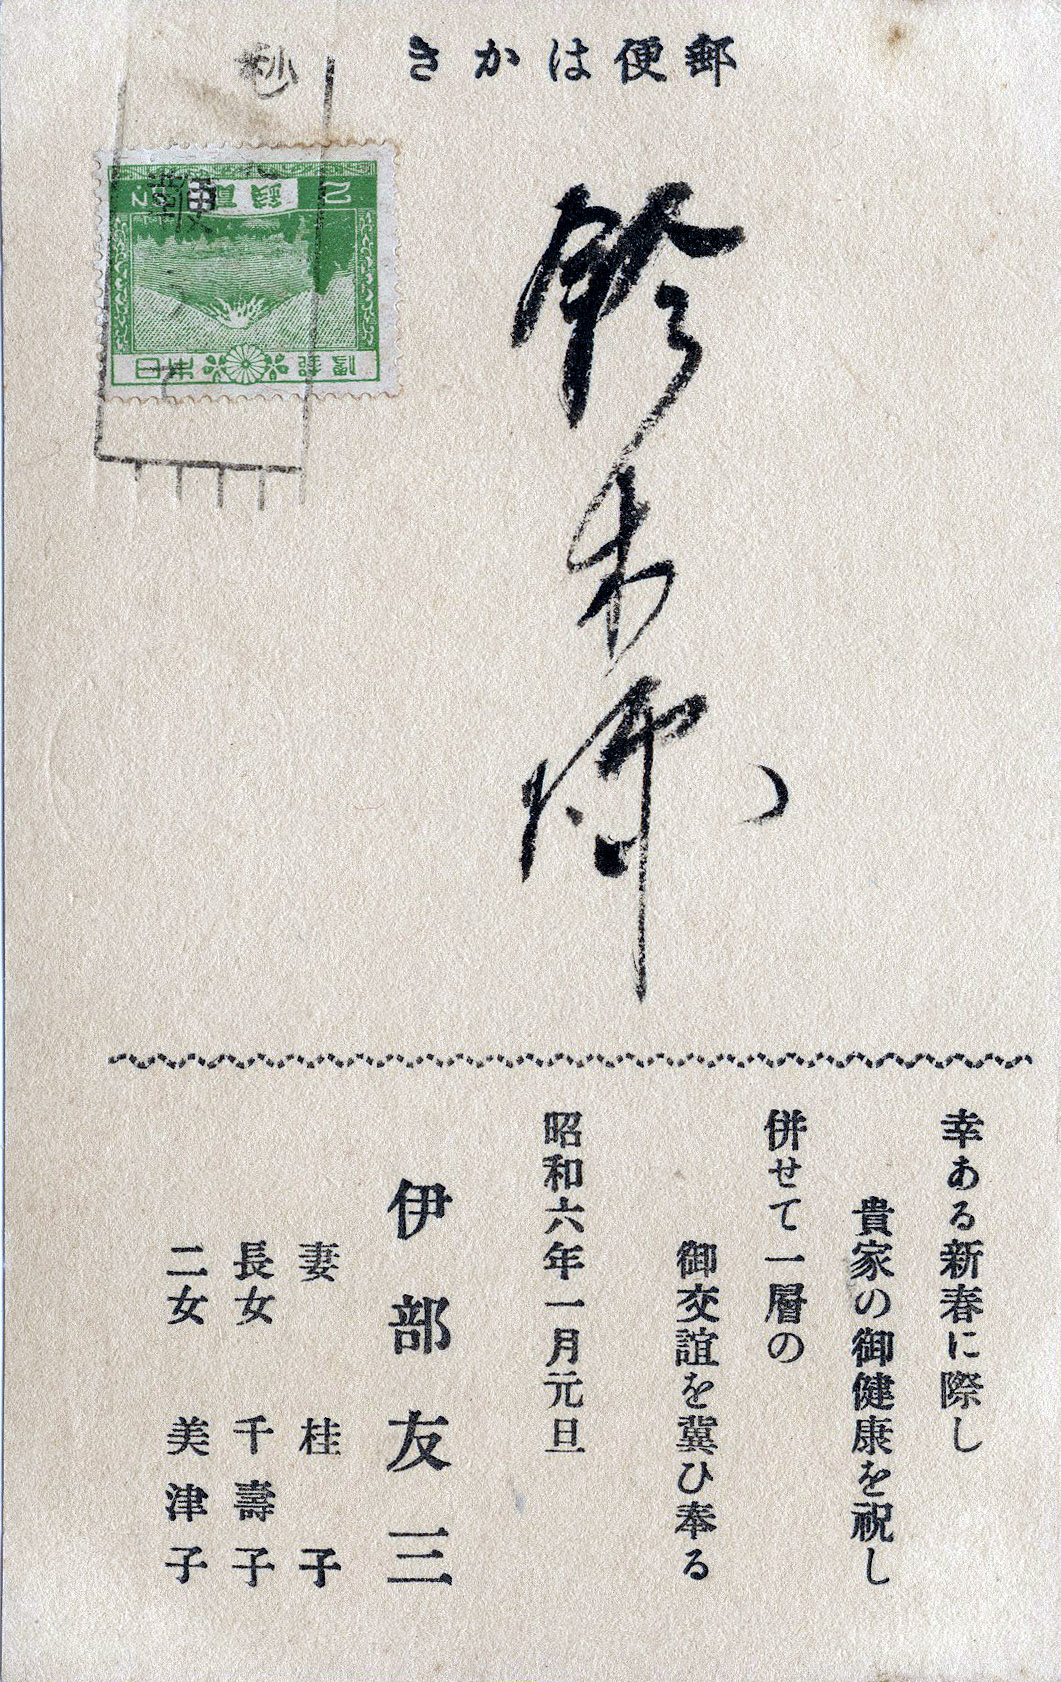 郵便はかき
鈴木様
幸ある新春に際し
貴家の御健康を祝し
併せて一層の
御交誼を冀ひ奉る
昭和六年一月元旦
伊部友三
妻 桂子
長女 千壽子
二女 美津子
日本郵便